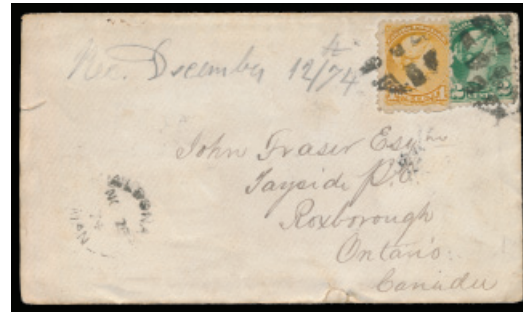 Rec. December 12/74
ONE CENT 1
2 2
John Fraser Esqr
Tayside P.O.
Roxborough
Ontario
Canada
MAN